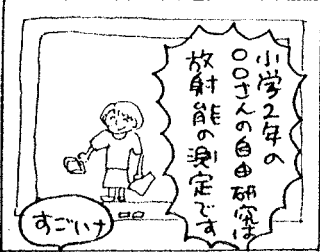 小学2年の
〇〇さんの自由研究は
放射能の測定です
すごいナ